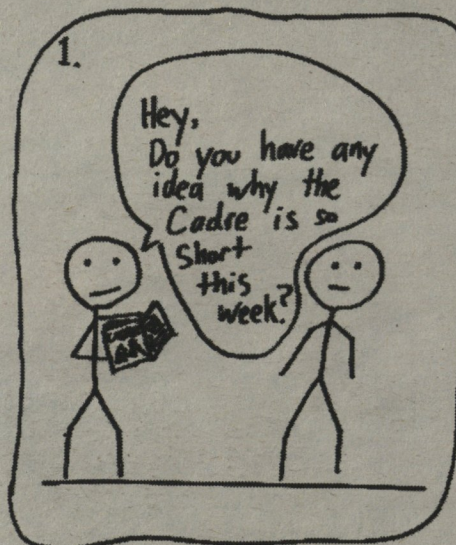 1.
Hey,
Do you have any
idea why the
Cadre is so
Short
this
week?